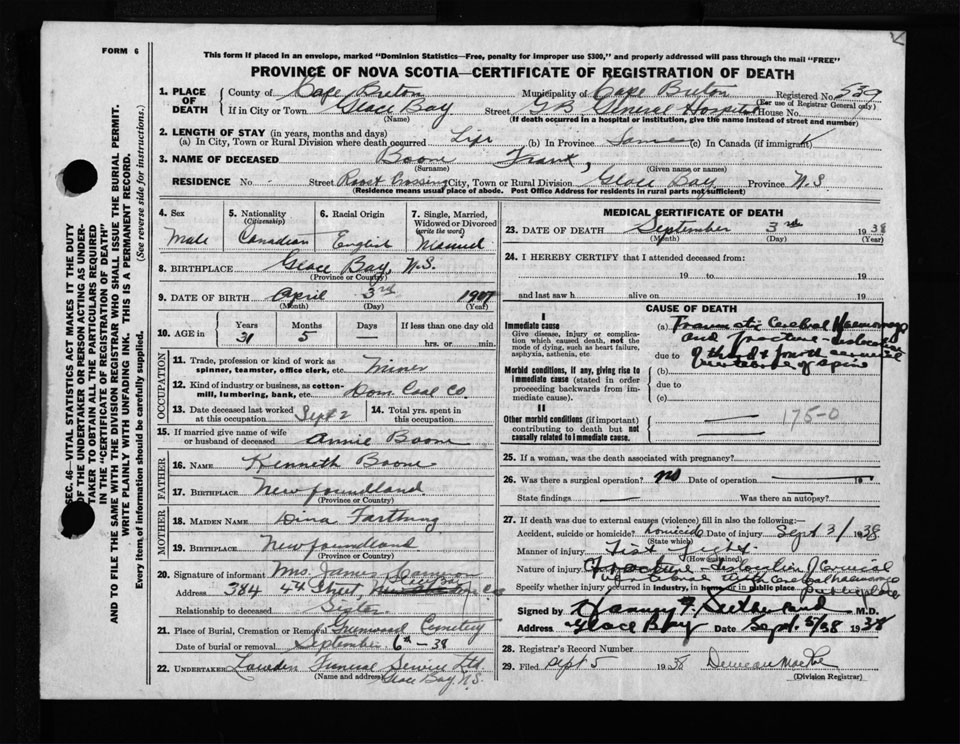 FORM 6
This form if placed in an envelope, marked "Dominion Statistics—Free, penalty for improper use $300," and properly addressed will pass through the mail "FREE"
PROVINCE OF NOVA SCOTIA—CERTIFICATE OF REGISTRATION OF DEATH
1. PLACE OF DEATH County of Cape Breton Municipality of Cape Breton Registered No. 529
(For use of Registrar General only)
If in City or Town Glace Bay Street G.B. General Hospital House No.
(Name) (If death occurred in a hospital or institution, give the name instead of street and number)
2. LENGTH OF STAY (in years, months and days)
(a) In City, Town or Rural Division where death occurred Life (b) In Province Same (c) In Canada (if immigrant)
3. NAME OF DECEASED Boone Frank,
(Surname) (Given name or names)
RESIDENCE No. - Street Roost Crossing City, Town or Rural Division Glace Bay Province N.S.
(Residence means usual place of abode. Post Office Address for residents in rural parts not sufficient)
SEC. 46—VITAL STATISTICS ACT MAKES IT THE DUTY
OF THE UNDERTAKER OR PERSON ACTING AS UNDERTAKER TO OBTAIN ALL THE PARTICULARS REQUIRED
IN THE "CERTIFICATE OF REGISTRATION OF DEATH"
AND TO FILE THE SAME WITH THE DIVISION REGISTRAR WHO SHALL ISSUE THE BURIAL PERMIT.
WRITE PLAINLY WITH UNFADING INK. THIS IS A PERMANENT RECORD.
Every item of information should be carefully supplied. (See reverse side for instructions.)
4. Sex Male
5. Nationality (Citizenship) Canadian
6. Racial Origin English
7. Single, Married, Widowed or Divorced (write the word) Married
8. BIRTHPLACE Glace Bay, N.S.
(Province or Country)
9. DATE OF BIRTH April 3rd 1907
(Month) (Day) (Year)
10. AGE in Years 31 Months 5 Days — If less than one day old
hrs. or min.
OCCUPATION
11. Trade, profession or kind of work as spinner, teamster, office clerk, etc. Miner
12. Kind of industry or business, as cotton-mill, lumbering, bank, etc. Dom. Coal Co.
13. Date deceased last worked at this occupation Sept 2
14. Total yrs. spent in this occupation
15. If married give name of wife or husband of deceased Annie Boone
FATHER
16. NAME Kenneth Boone
17. BIRTHPLACE Newfoundland
(Province or Country)
MOTHER
18. MAIDEN NAME Dina Farthing
19. BIRTHPLACE Newfoundland
(Province or Country)
20. Signature of informant Mrs. James
Address 384 4th Street,
Relationship to deceased Sister
21. Place of Burial, Cremation or Removal Greenwood Cemetery
Date of burial or removal September 6th 38
22. UNDERTAKER Funeral Service Ltd
(Name and address) Glace Bay N.S.
MEDICAL CERTIFICATE OF DEATH
23. DATE OF DEATH September 3rd 1938
(Month) (Day) (Year)
24. I HEREBY CERTIFY that I attended deceased from:
19 to 19
and last saw h alive on 19
CAUSE OF DEATH
I
Immediate cause
Give disease, injury or complication which caused death, not the mode of dying, such as heart failure, asphyxia, asthenia, etc
(a) Traumatic Cerebral Haemorrhage
and fracture-dislocation
due to of third & fourth cervical
vertebrae of spine
Morbid conditions, if any, giving rise to immediate cause (stated in order proceeding backwards from immediate cause).
(b)
due to
(c)
II
Other morbid conditions (if important) contributing to death but not causally related to immediate cause.
175-0
25. If a woman, was the death associated with pregnancy?
26. Was there a surgical operation? No Date of operation 19
State findings Was there an autopsy?
27. If death was due to external causes (violence) fill in also the following:—
Accident, suicide or homicide? homicide Date of injury Sept 3/ 1938
(State which)
Manner of injury Fist Fight.
(How sustained)
Nature of injury Fracture-dislocation of Cervical
vertebrae with Cerebral haemorrhage
Specify whether injury occurred in industry, in home or in public place public place
Signed by Harvey F. Sutherland M.D.
Address Glace Bay Date Sept. 5/38 1938
28. Registrar's Record Number
29. Filed Sept 5 1938
(Division Registrar)